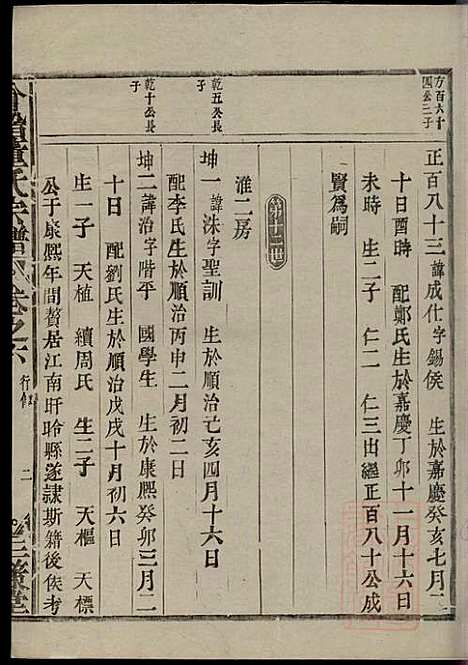 方百六十
四公二子
正百八十三 諱成仕字錫侯 生於嘉慶癸亥七月二
十日酉時 配鄭氏生於嘉慶丁卯十一月十六日
未時 生二子 仁二 仁三出繼正百八十公成
賢為嗣
第十二世
淮二房
乾五公長
子
坤一 諱洙字聖訓 生於順治己亥四月十六日
配李氏生於順治丙申二月初二日
乾十公長
子
坤二 諱治字階平 國學生 生於康熙癸卯三月二
十日 配劉氏生於順治戊戌十月初六日
生一子 天植 續周氏 生二子 天樞 天標
公于康熙年間贅居江南盱眙縣遂隸斯籍後俟考
董氏宗譜
卷之六
行傳
二
三策堂